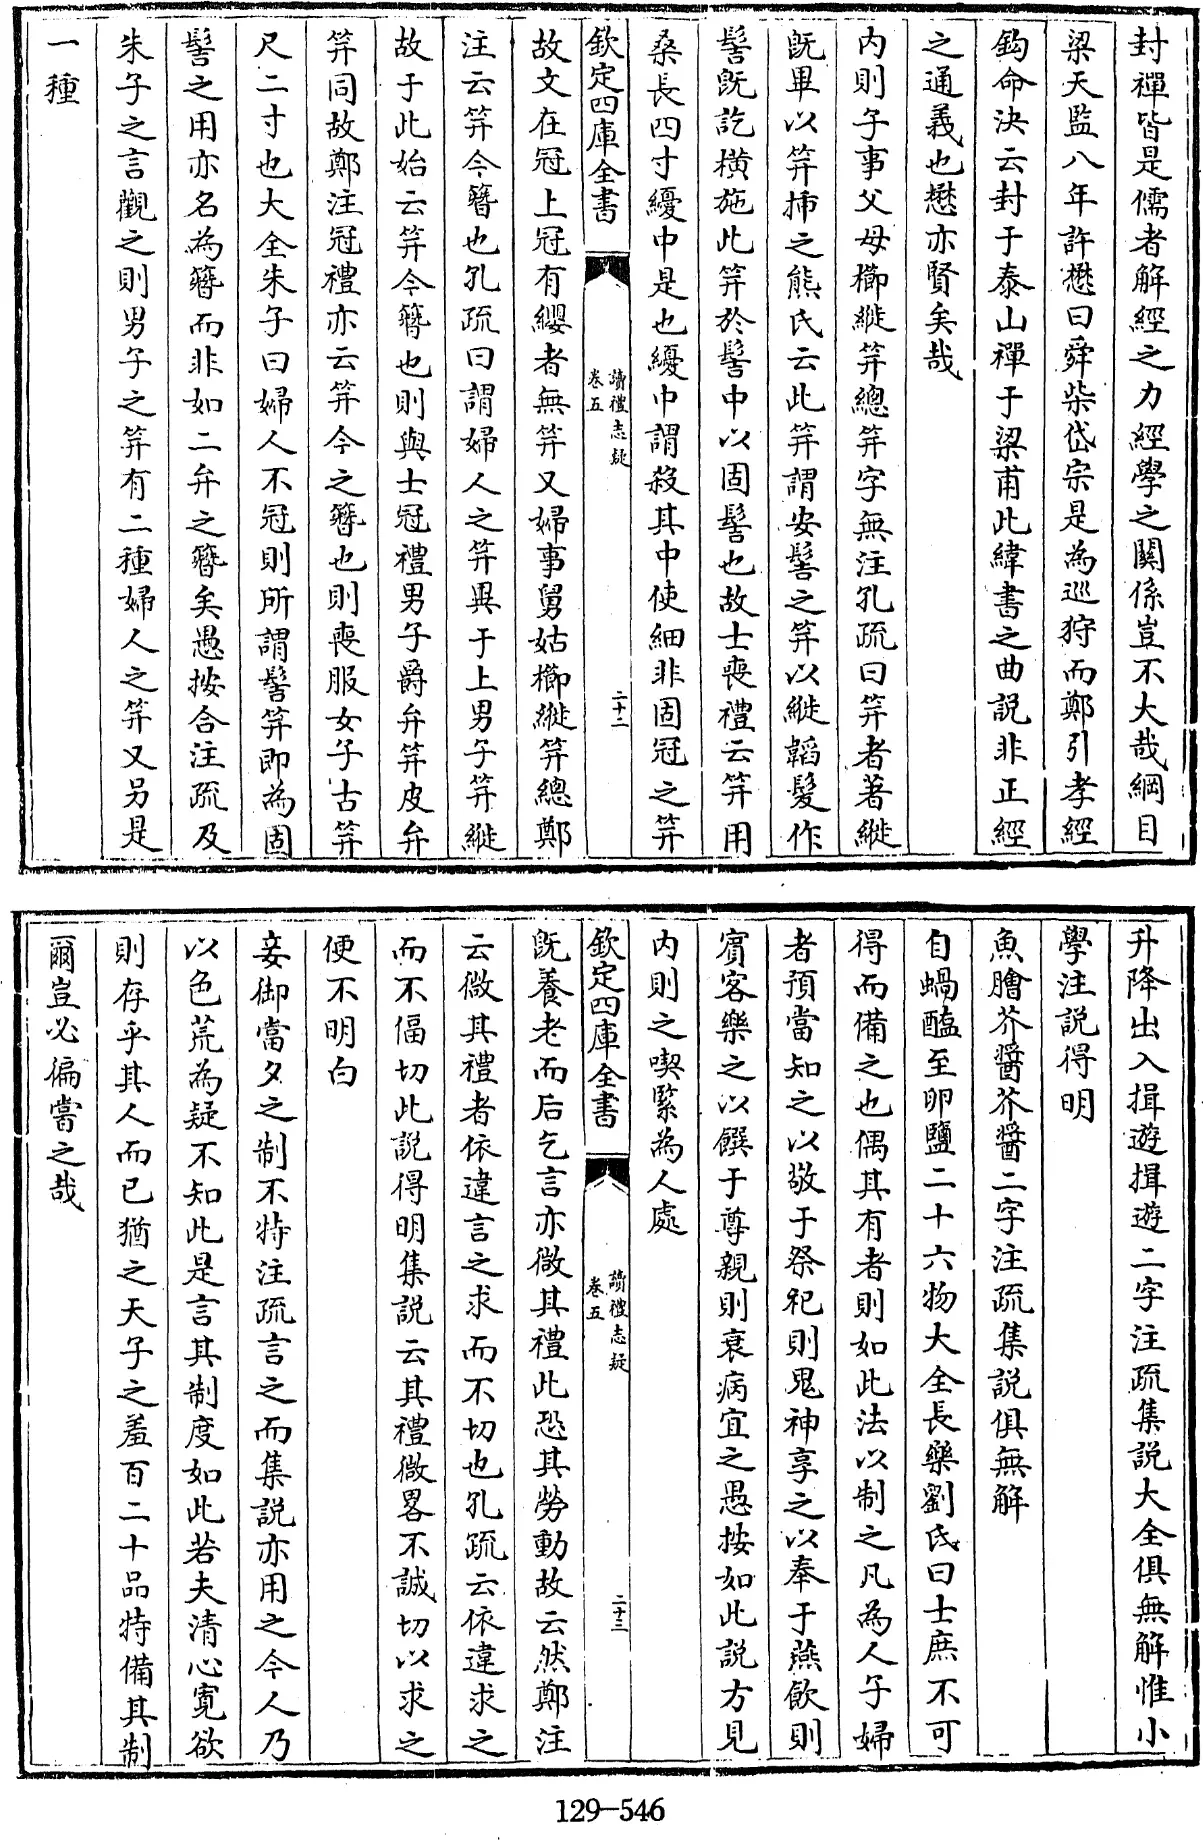 封禪皆是儒者解經之力經學之關係豈不大哉綱目
梁天監八年許懋曰舜柴岱宗是為巡狩而鄭引孝經
鈎命決云封于泰山禪于梁甫此緯書之曲說非正經
之通義也懋亦賢矣哉
内則子事父母櫛縰笄總笄字無注孔疏曰笄者著縰
既畢以笄揷之熊氏云此笄謂安髻之笄以縰韜髮作
髻既訖橫施此笄於髻中以固髻也故士喪禮云笄用
桑長四寸纋中是也纋中謂殺其中使細非固冠之笄
欽定四庫全書
讀禮志疑
卷五
二十二
故文在冠上冠有纓者無笄又婦事舅姑櫛縰笄總鄭
注云笄今簪也孔疏曰謂婦人之笄異于上男子笄縰
故于此始云笄今簪也則與士冠禮男子爵弁笄皮弁
笄同故鄭注冠禮亦云笄今之簪也則喪服女子吉笄
尺二寸也大全朱子曰婦人不冠則所謂髻笄即為固
髻之用亦名為簪而非如二弁之簪矣愚按合注疏及
朱子之言觀之則男子之笄有二種婦人之笄又另是
一種
升降出入揖遊揖遊二字注疏集說大全俱無解惟小
學注說得明
魚膾芥醬芥醬二字注疏集說俱無解
自蝸醢至卵鹽二十六物大全長樂劉氏曰士庶不可
得而備之也偶其有者則如此法以制之凡為人子婦
者預當知之以敬于祭祀則鬼神享之以奉于燕飲則
賓客樂之以饌于尊親則衰病宜之愚按如此說方見
内則之喫緊為人處
欽定四庫全書
讀禮志疑
卷五
二十三
既養老而后乞言亦微其禮此恐其勞動故云然鄭注
云微其禮者依違言之求而不切也孔疏云依違求之
而不偪切此說得明集說云其禮微畧不誠切以求之
便不明白
妾御當夕之制不特注疏言之而集說亦用之今人乃
以色荒為疑不知此是言其制度如此若夫清心寛欲
則存乎其人而已猶之天子之羞百二十品特備其制
爾豈必徧嘗之哉
129-546